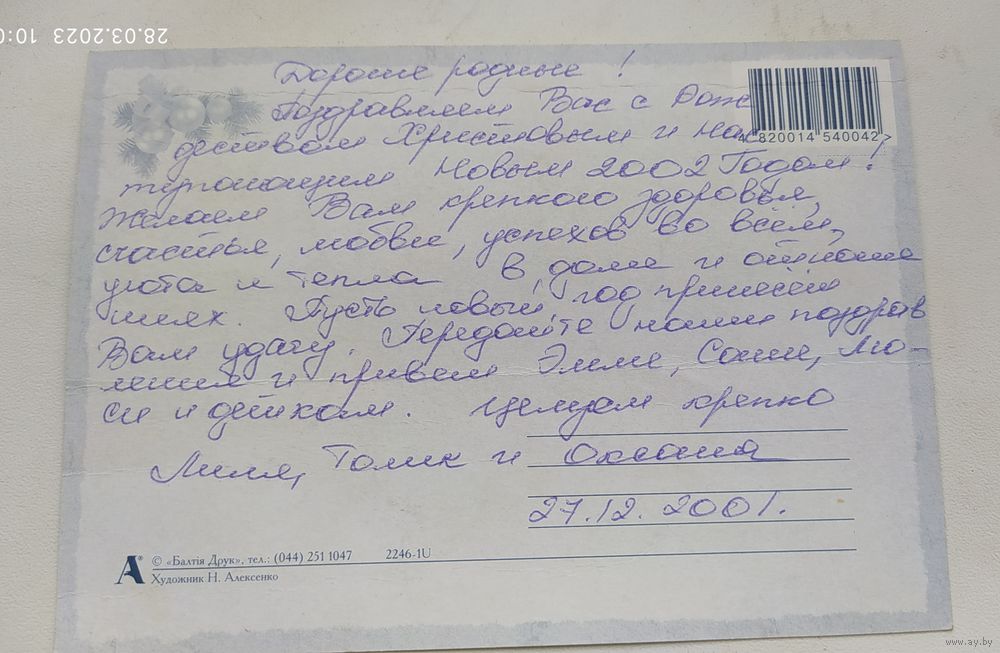 28.03.2023 10:0
Дорогие родные !
Поздравляем Вас с Рож
деством Христовым и нас
тупающим Новым 2002 Годом !
Желаем Вам крепкого здоровья,
счастья, любви, успехов во всём,
уюта и тепла в доме и отноше
ниях. Пусть новый год принесёт
Вам удачу. Передайте наши поздрав
ления и привет Эмме, Саше, Лю-
си и деткам. Целуем крепко
Лиля, Толик и Оксана
27.12.2001.
4 820014 540042 >
A® © «Балтія Друк», тел.: (044) 251 1047 2246-1U
Художник Н. Алексенко
www.ay.by